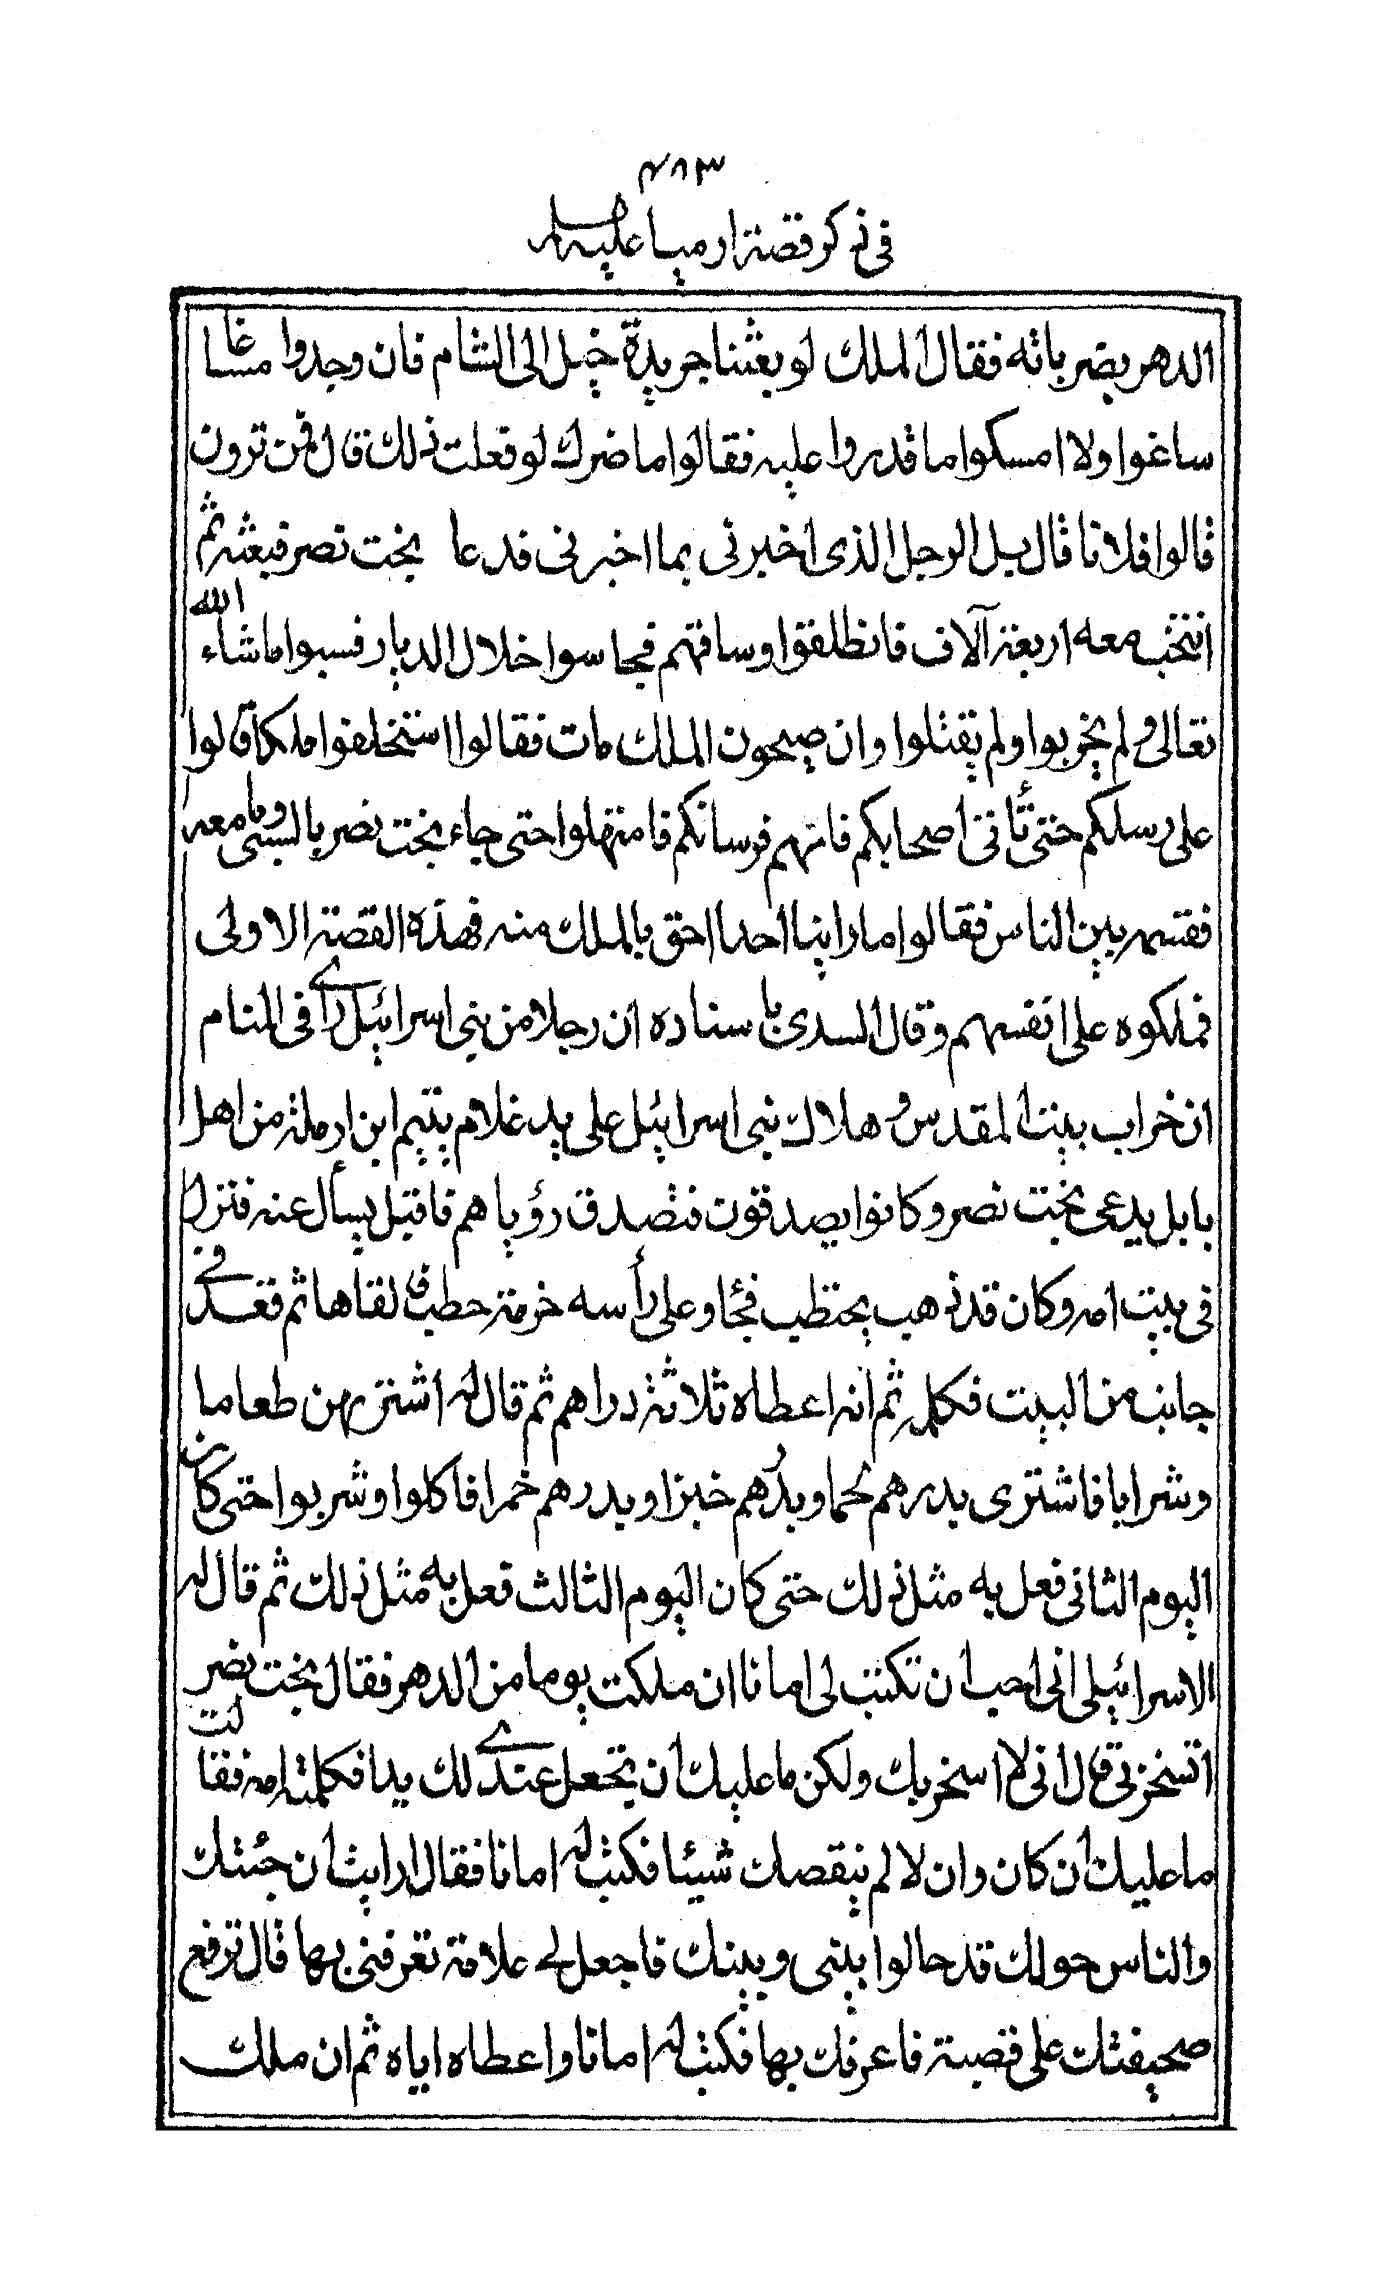 ٤٨٣
في ذكر قصة ارميا عليه السلم
الدهر بضرباته فقال الملك لو بعثنا جريدة خيل الى الشام فان وجدوا مساغا
ساغوا ولا امسكوا ما قدروا عليه فقالوا ما ضرك لو فعلت ذلك قال فمن ترون
قالوا فلانا قال بل الرجل الذى اخبرنى بما اخبرنى فدعا بخت نصر فبعثه ثم
انتخب معه اربعة آلاف فانطلقوا وساقتهم فجاسوا خلال الديار فسبوا ما شاء الله
تعالى ولم يخربوا ولم يقتلوا وان صيحون الملك مات فقالوا استخلفوا ملكا قالوا
على رسلكم حتى تأتى اصحابكم فانهم فرسانكم فامتهلوا حتى جاء بخت نصر بالسبى وما معه
فقسمه بين الناس فقالوا ما راينا احدا احق بالملك منه فهذه القصة الاولى
فملكوه على انفسهم وقال السدى باسناده ان رجلا من بنى اسرائيل راى فى المنام
ان خراب بيت المقدس وهلاك بنى اسرائيل على يد غلام يتيم ابن ارملة من اهل
بابل يدعى بخت نصر وكانوا يصدقون فتصدق رؤياهم فاقبل يسأل عنه فنزل
فى بيت امه وكان قد ذهب يحتطب فجئا وعلى رأسه حزمة حطب فالقاها ثم قعد فى
جانب من البيت فكلمه ثم انه اعطاه ثلاثة دراهم ثم قال له اشتر بهن طعاما
وشرابا فاشترى بدرهم لحما وبدرهم خبزا وبدرهم خمرا فاكلوا وشربوا حتى كان
اليوم الثانى فعل به مثل ذلك حتى كان اليوم الثالث فعل به مثل ذلك ثم قال له
الاسرائيلى انى احب ان تكتب لى امانا ان ملكت يوما من الدهر فقال بخت نصر
اتسخر بى قال انى لا اسخر بك ولكن ما عليك ان تجعل عندى لك يدا فكلمته امه فقالت
ما عليك ان كان وان لا لم ينقصك شيئا فكتب له امانا فقال ارايت ان جئتك
والناس حولك قد حالوا بينى وبينك فاجعل لى علامة تعرفنى بها قال ترفع
صحيفتك على قصبة فاعرفك بها فكتب له امانا واعطاه اياه ثم ان ملك